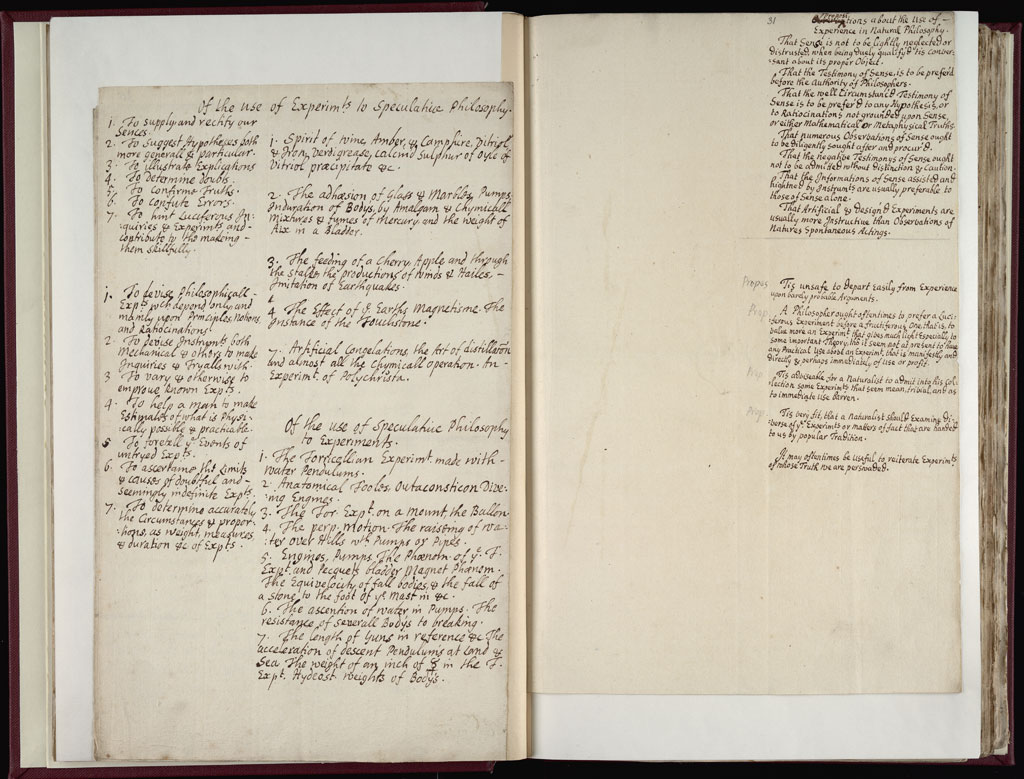 Of the use of Experim.ts to Speculative Philosophy.
1. To supply and rectify our
Sences.
2. To Suggest Hypotheses both
more generall & particular.
3. To illustrate Explications
4. To Determine doubts.
5. To confirme Truths.
6. To confute Errors.
7. To hint Luciferous In-
quiries & Experim.ts and
contribute to the making
them skillfully.
1. Spirit of wine, Amber, & Campfire, Vitriol,
& Iron, verdigrease, calcin'd Sulphur of oyle of
vitriol præcipitate &c.
2. The adhæsion of Glass & Marbles, Pumps,
Induration of Bodys, by Amalgam & Chymicall
mixtures & fumes of Mercury and the weight of
Air in a Bladder.
3. The feeding of a Cherry, Apple and through
the stalke, the productions of winds & Hailes,
Imitation of Earthquakes.
4 The Effect of ye Earths Magnetisme. The
Instance of the Touchstone.
7. Artificial Congelations, the Art of distillation
and almost all the Chymicall operation. An
Experim.t of Polychrista.
1. To devise Philosophicall
Exp.ts wch depend only and
mainly upon Principles, Notions,
and Ratiocinations.
2. To devise Instrum.ts both
Mechanical & others to make
Inquiries & Tryalls with.
3 To vary & otherwise to
emprove known Exp.ts.
4. To help a man to make
Estimates of what is Physi-
cally possible & practicable.
5 To foretell ye Events of
untryed Exp.ts.
6. To ascertaine the Limits
& causes of doubtful and
seemingly indefinite Exp.ts.
7. To determine accurately
the Circumstances & propor-
tions, as weight, measures,
& duration &c of Exp.ts.
Of the use of Speculative Philosophy
to Experiments.
1. The Torricellian Experim.t made with
water Pendulums.
2 Anatomical Tooles, Outaconsticon Dive-
ing Engines.
3. The Tor. Exp.t on a mount, the Ballon
4. The perp. motion. The raising of wa-
ter over Hills wth Pumps or Pipes.
5. Engines, Pumps, The Phænom. of ye T.
Exp.t and Pecquets bladder Magnet Phænom.
The Equivelocity of fall bodies, & the fall of
a stone to the foot of ye Mast in &c.
6. The ascention of water in Pumps. The
resistance of severall Bodys to breaking.
7. The length of Guns in reference &c The
acceleration of descent Pendulums at Land &
Sea The weight of an inch of ☿ in the T.
Exp.t Hydrost. weights of Bodys.
31
Propositions about the Use of
Experience in Natural Philosophy.
That Sense is not to be lightly neglected or
distrusted, when being duely qualify'd 'tis conver-
sant about its proper Object.
That the Testimony of Sense, is to be prefer'd
before the Authority of Philosophers.
That the well Circumstanc'd Testimony of
Sense is to be prefer'd to any Hypothesis, or
to Ratiocinations not grounded upon Sense,
or either Mathematical or Metaphysical Truths.
That numerous Observations of Sense ought
to be diligently sought after and procur'd.
That the negative Testimonys of Sense ought
not to be admitted without distinction & Caution.
That the Informations of Sense assisted and
hightned by Instrum.ts are usually preferable to
those of Sense alone.
That Artificial & Design'd Experiments are
usually more Instructive than Observations of
Natures Spontaneous Actings.
Propos
Tis unsafe to Depart Easily from Experience
upon barely probable Arguments.
Prop.
A Philosopher ought oftentimes to prefer a Luci-
ferous Experiment before a fructiferous One, that is, to
value more an Experim.t that gives much light Especially to
some important Theory, tho it seem not at present to have
any Practical Use about an Experim.t that is manifestly and
directly & perhaps immediately, of use or profit.
Prop.
Tis adviseable for a Naturalist to admit into his Col-
lection some Experim.ts that seem mean, trivial, and as
to immediate use barren.
Prop.
Tis very fit, that a Naturalist should Examine di-
verse of ye Experim.ts or matters of fact that are handed
to us by popular Tradition.
It may oftentimes be useful to reiterate Experim.ts
of whose Truth we are perswaded.